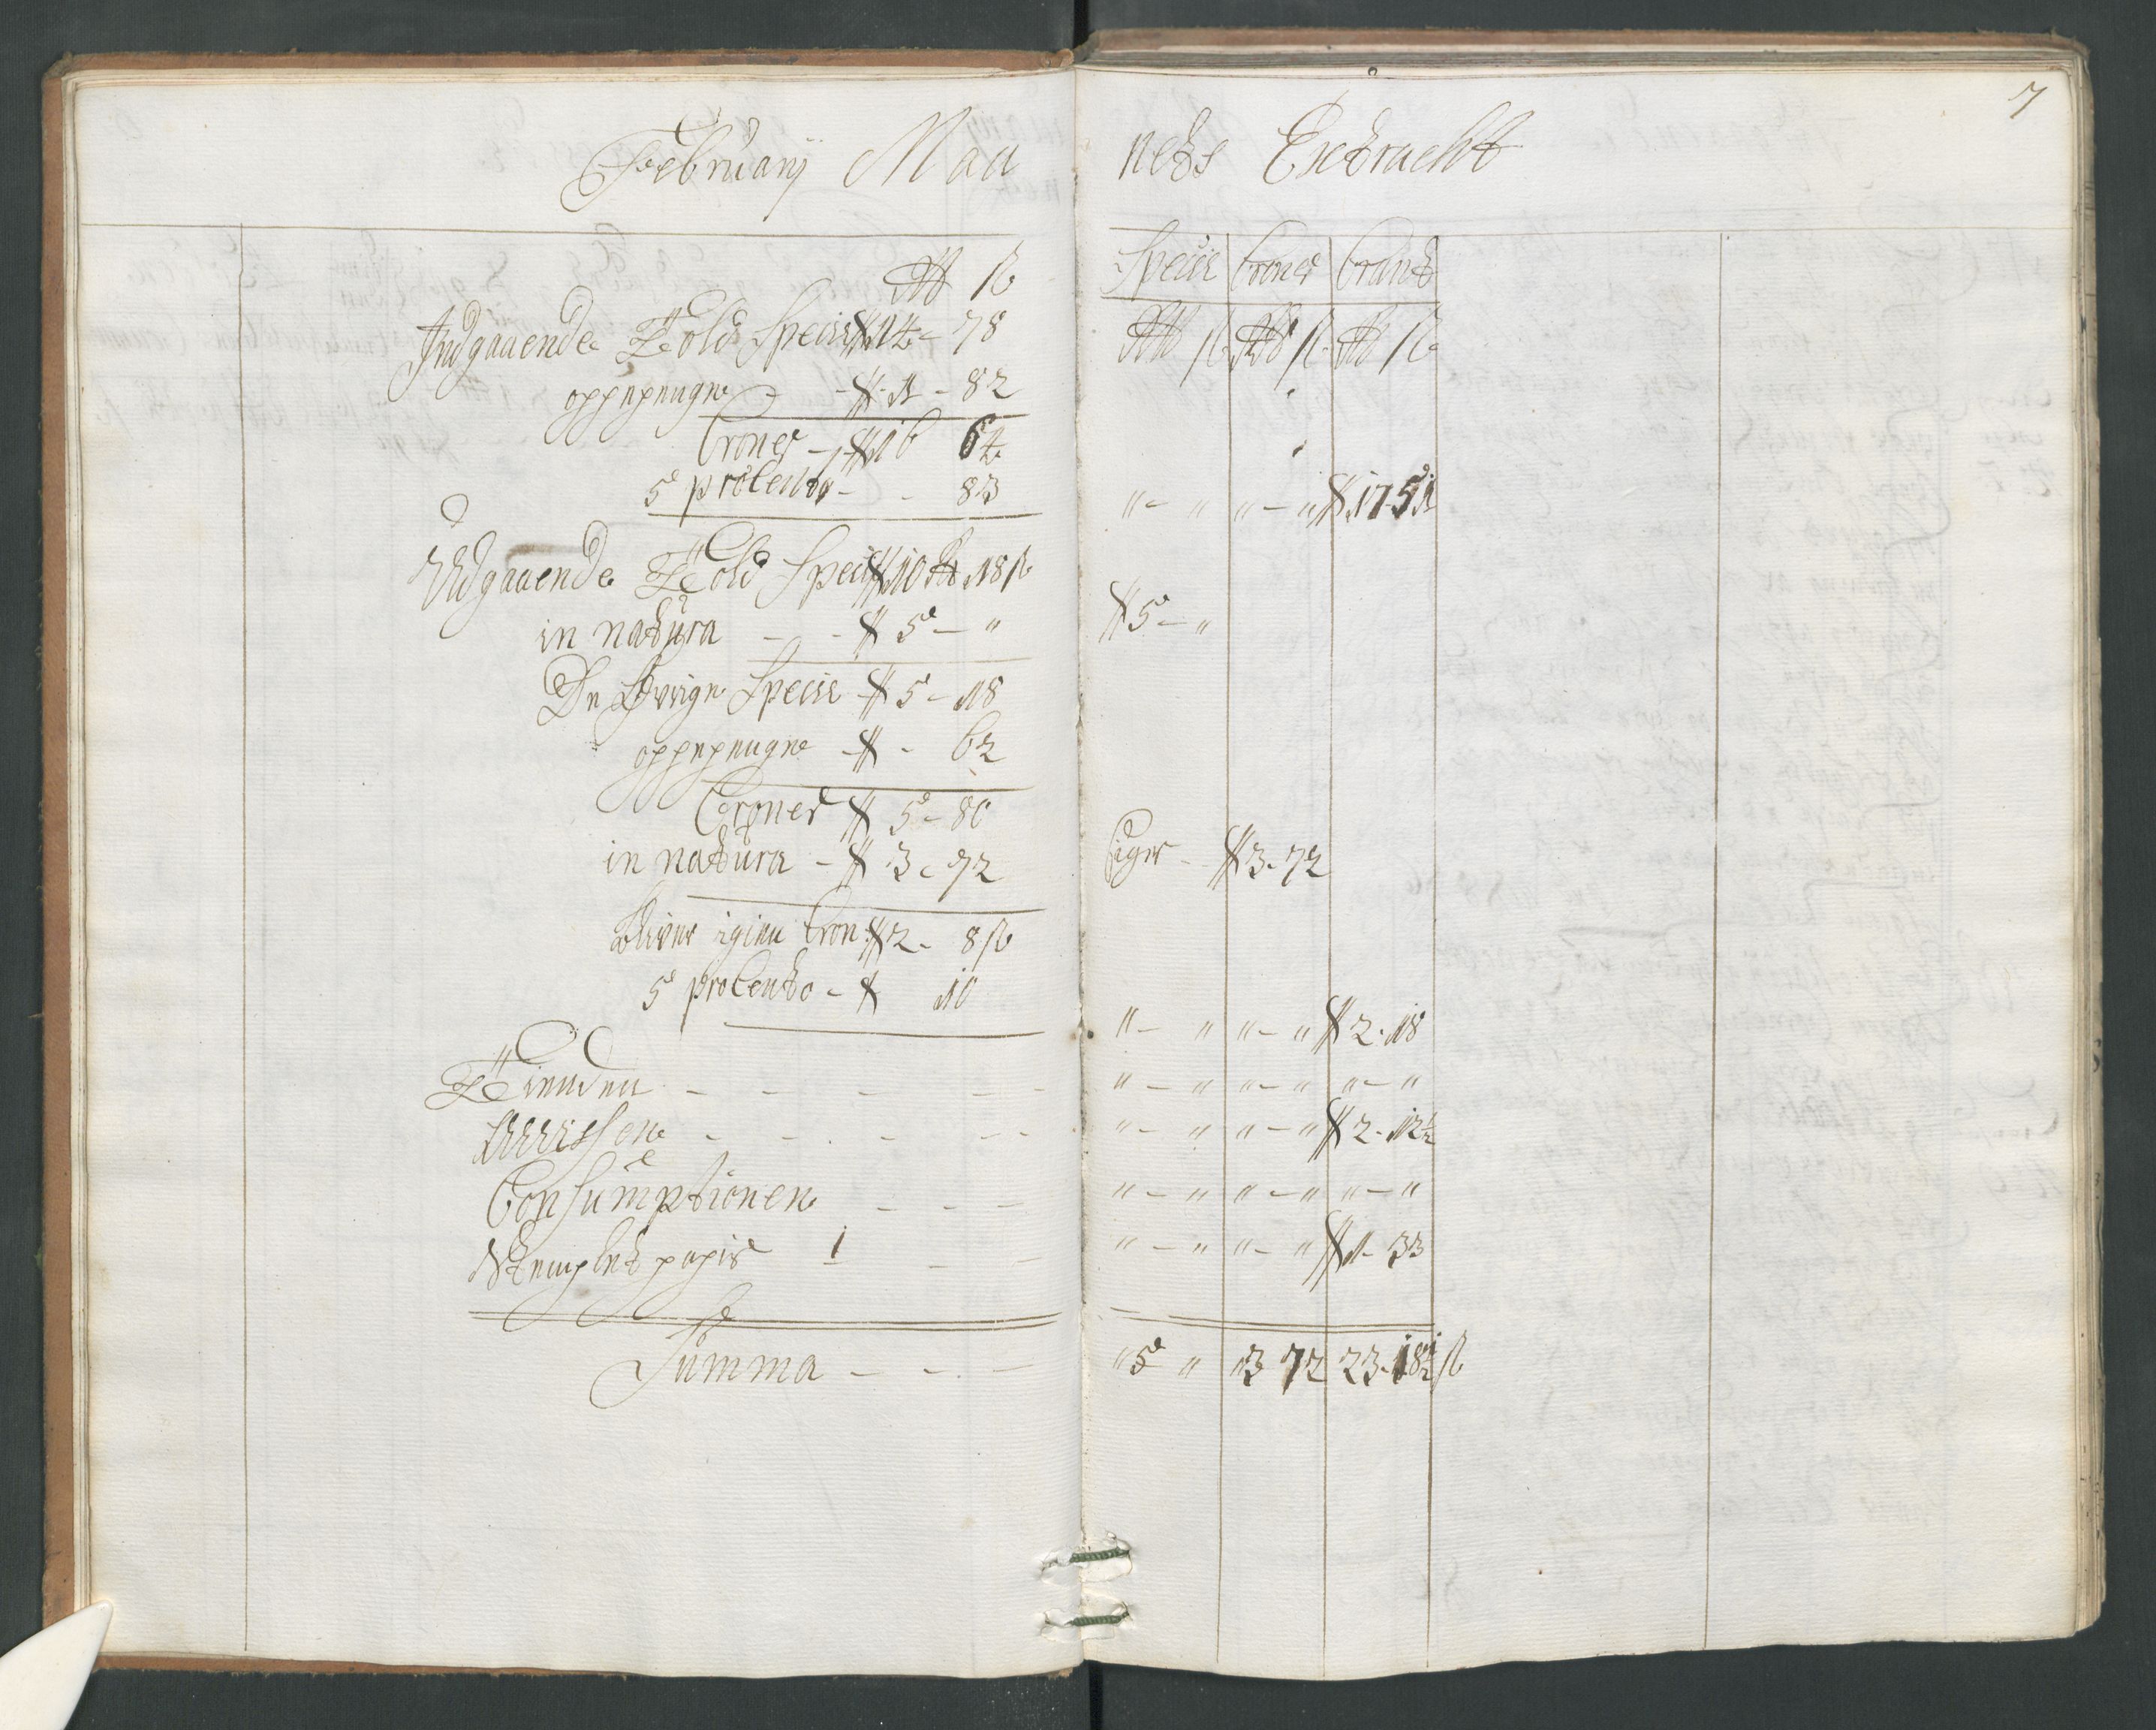 7
Februarij Maanets Extracht
Rd ß
Specie Croner Courant
Rd ß Rd ß Rd ß
Indgaaende Told Specie 14 - 78
oppepenge - 1 - 82
Croner - 16 64
5 procento - - 83
" - " " - " 17 51
Udgaaende Told Specie 10 Rd 18 ß
in natura - - 5 - " 5 - "
De Øvrige Specie 5 - 18
oppepenge - - 62
Croner 5 - 80
in natura - 3 - 72 3 - 72
bliver igien Cron 2 - 8 ß
5 procento - 10
" - " " - " 2 - 18
Tienden - - - - - " - " " - " " - "
Accissen - - - - - " - " " - " 2 - 12½
Consumptionen - - - " - " " - " " - "
Stemplet papir 1 - - " - " " - " 1 - 33
Summa - - - " 5 " 3 72 23 - 18½ ß